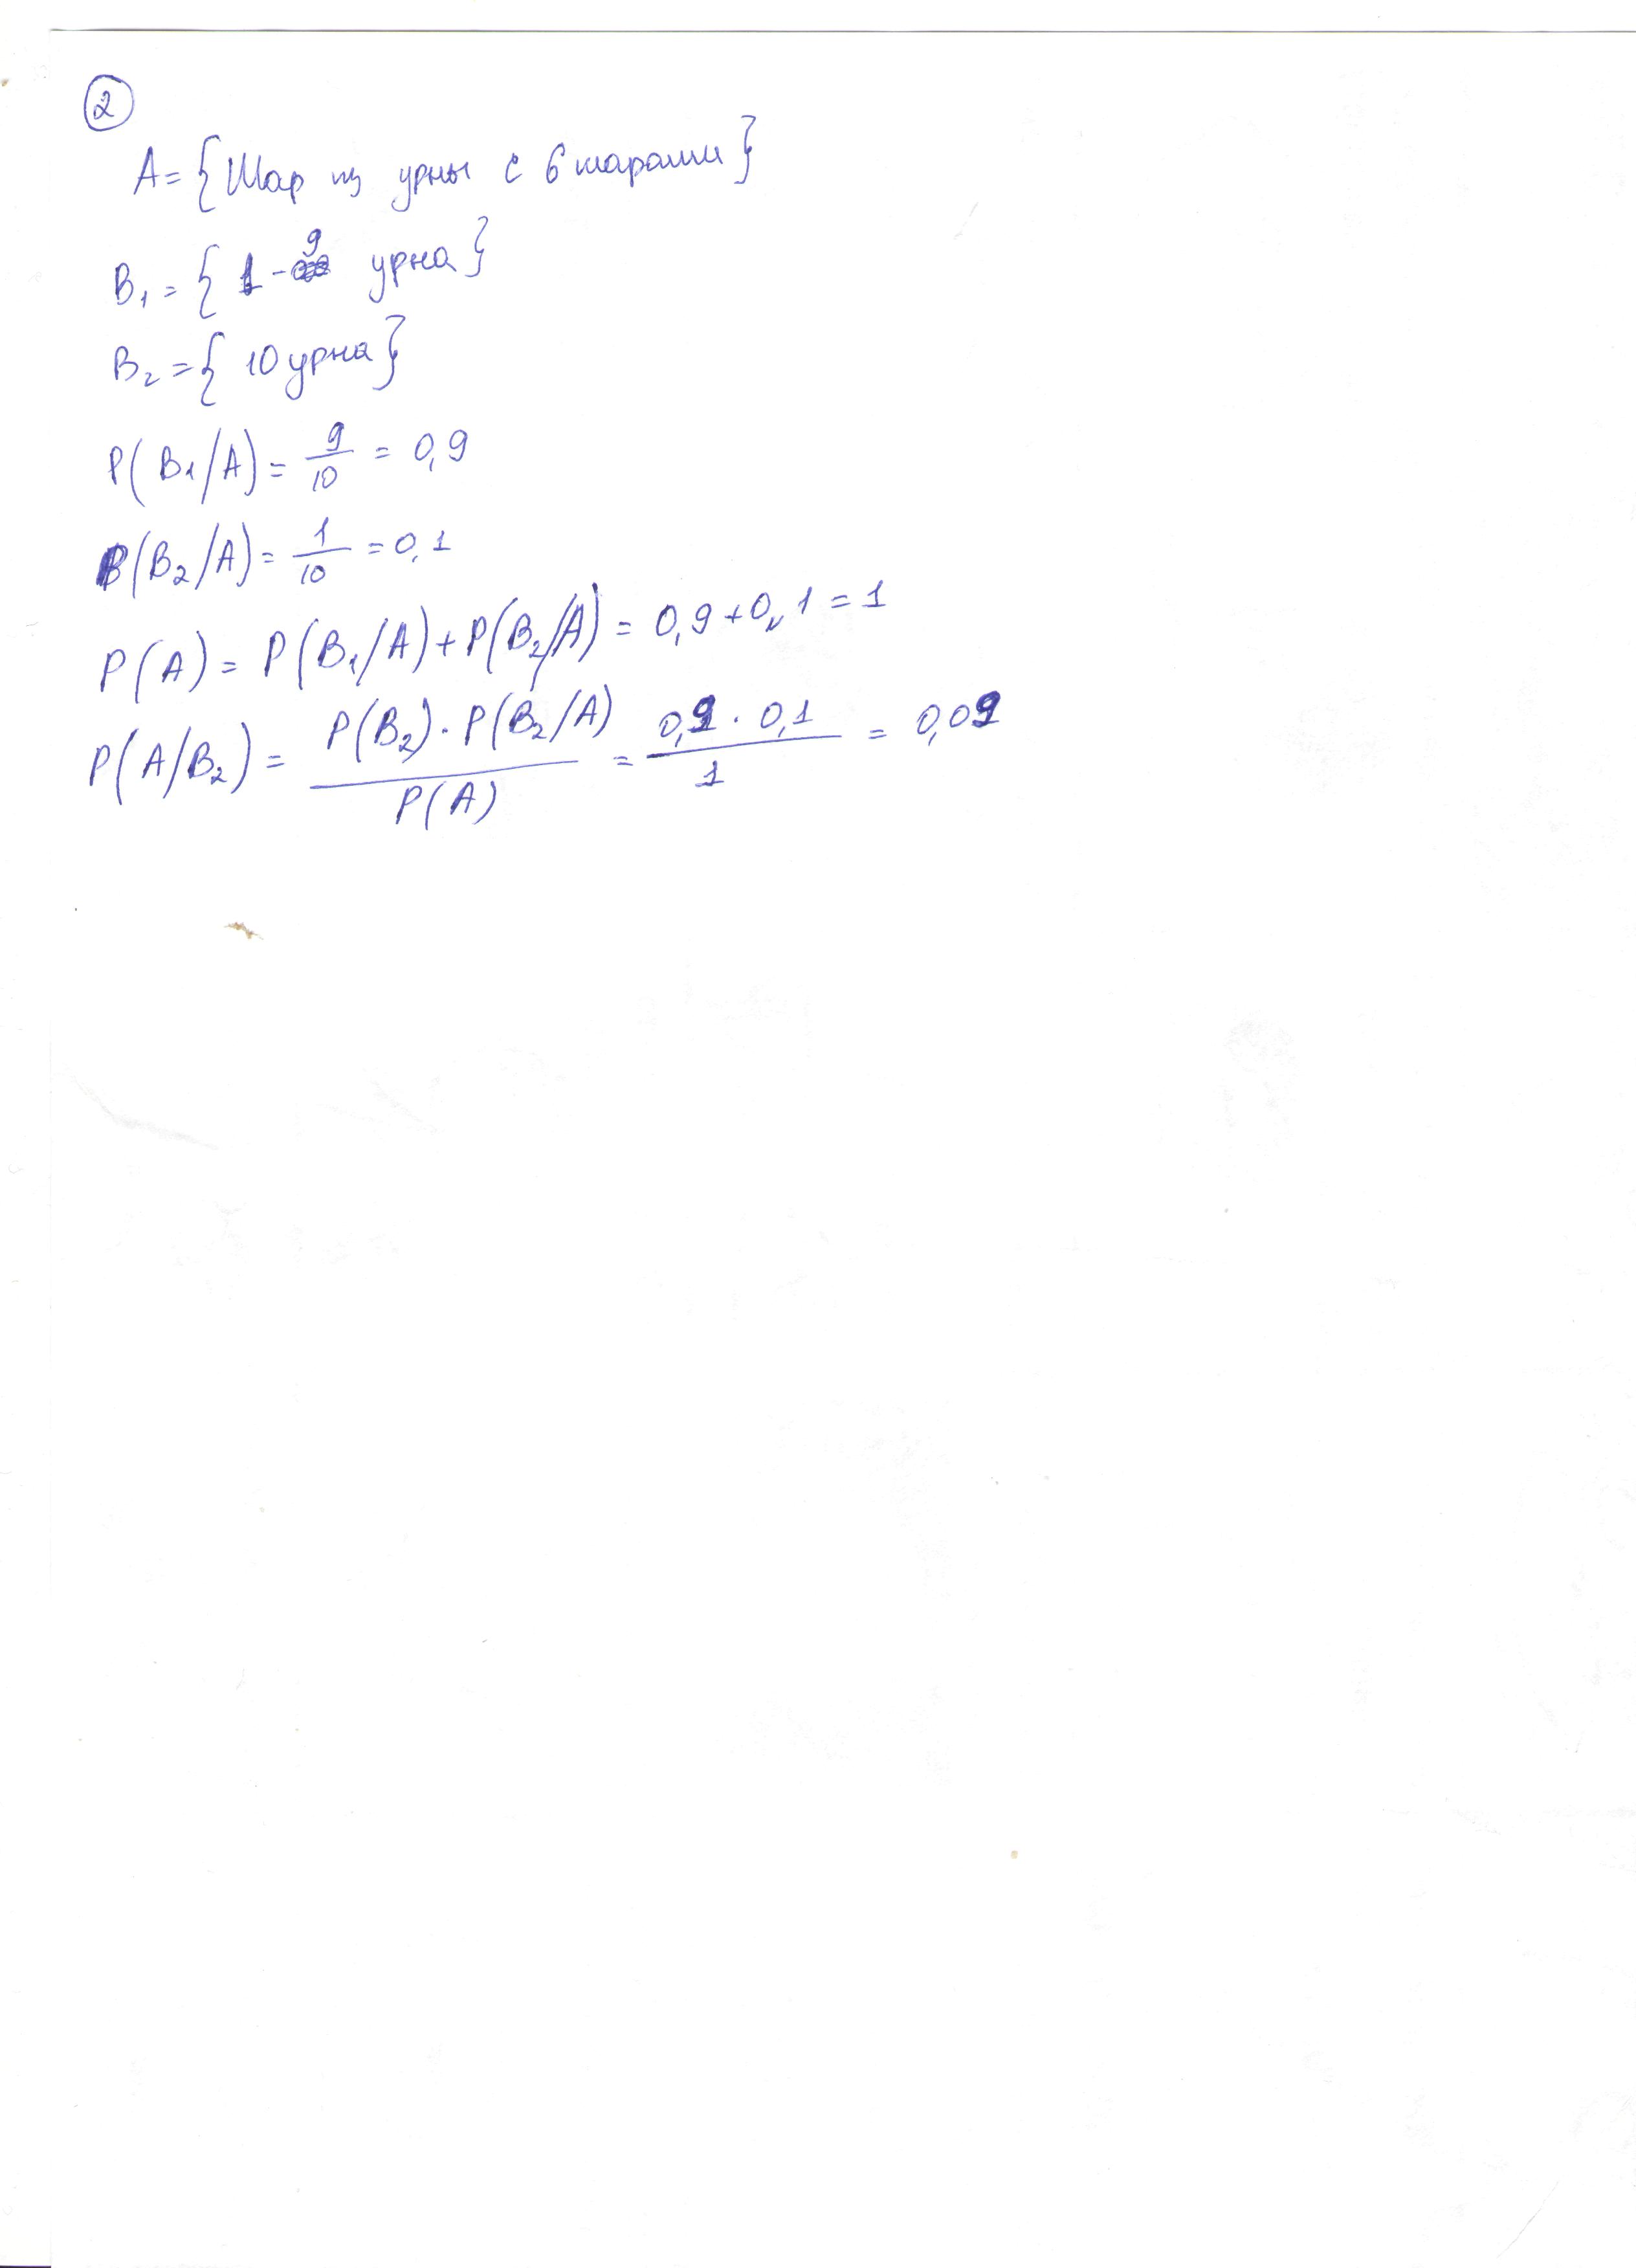 2
A = {Шар из урны с 6 шарами}
B₁ = {1 - 9 урна}
B₂ = {10 урна}
P(B₁/A) = 9/10 = 0,9
P(B₂/A) = 1/10 = 0,1
P(A) = P(B₁/A) + P(B₂/A) = 0,9 + 0,1 = 1
P(A/B₂) = P(B₂) · P(B₂/A) / P(A) = 0,9 · 0,1 / 1 = 0,09